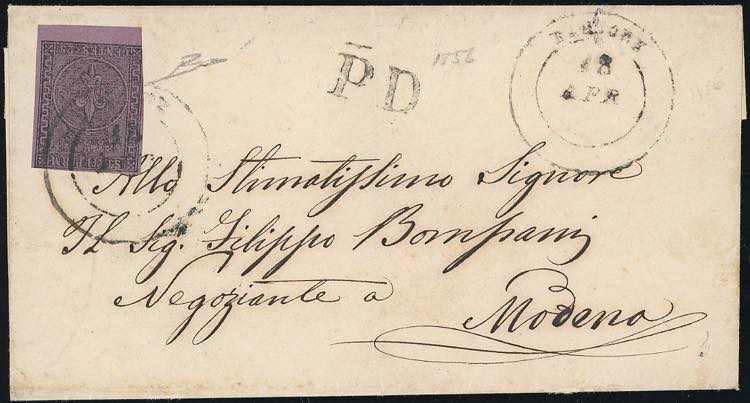 STATI PARM
1856
P D
18
APR
Allo Stimatissimo Signore
Il Sig. Filippo Bompani
Negoziante a
Modena